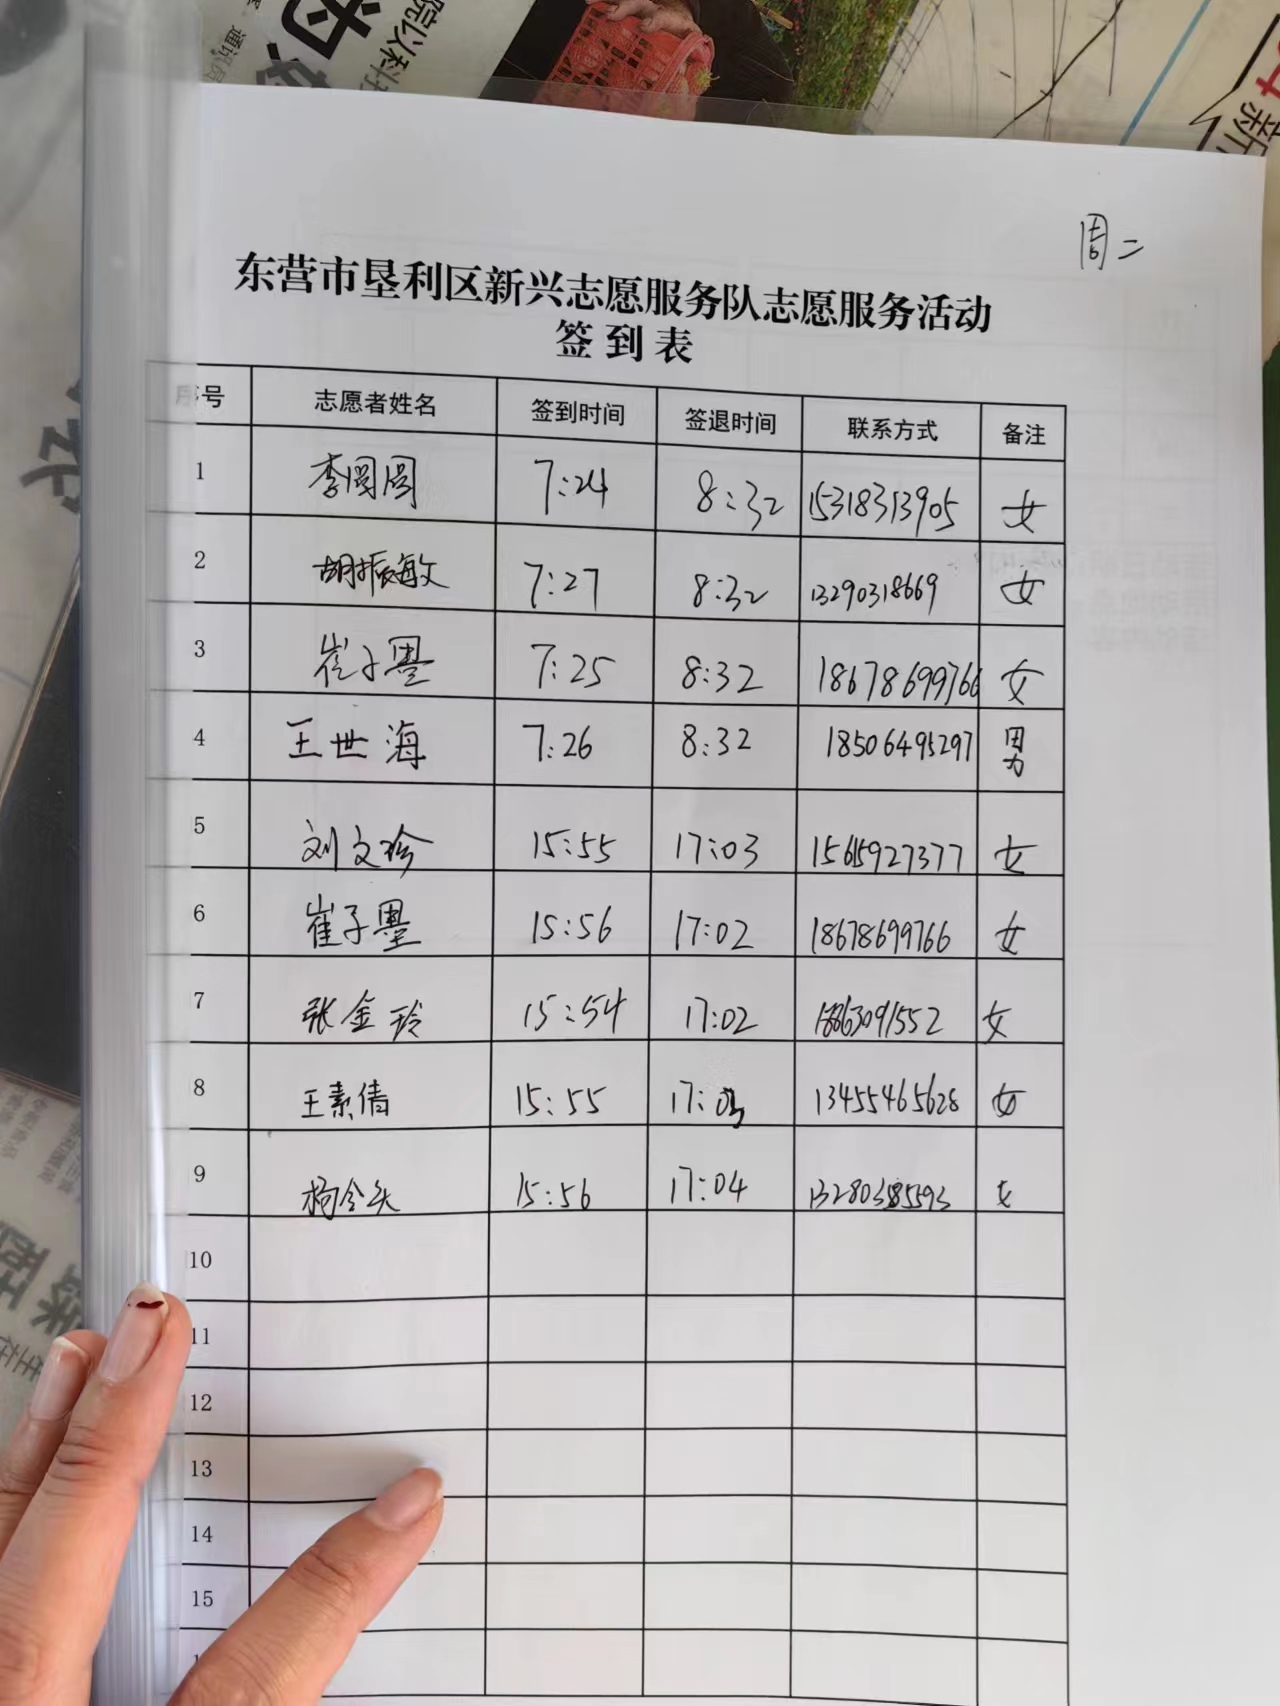 周二
东营市垦利区新兴志愿服务队志愿服务活动
签到表
序号 志愿者姓名 签到时间 签退时间 联系方式 备注
1 李圆圆 7:24 8:32 15318313905 女
2 胡振敏 7:27 8:32 13290318669 女
3 崔子墨 7:25 8:32 18678699766 女
4 王世海 7:26 8:32 18506495297 男
5 刘文珍 15:55 17:03 15615927377 女
6 崔子墨 15:56 17:02 18678699766 女
7 张金玲 15:54 17:02 18863091552 女
8 王素倩 15:55 17:03 13455465628 女
9 15:56 17:04 女
10
11
12
13
14
15